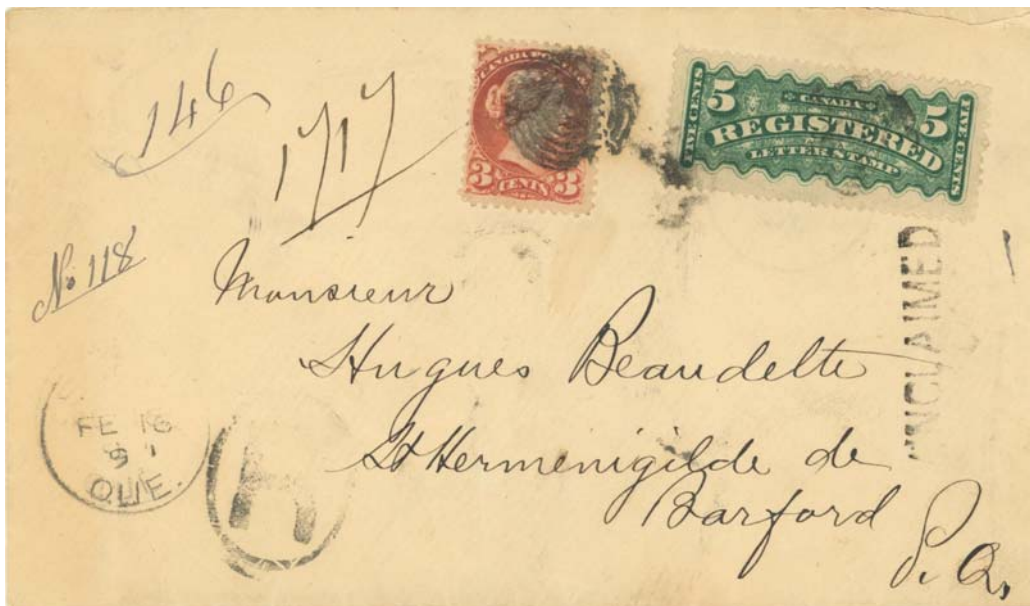 146
1717
No 118
CANADA
3 CENTS 3
5 CANADA 5
FIVE CENTS
REGISTERED
LETTER STAMP
FIVE CENTS
UNCLAIMED
Monsieur
Hugues Beaudette
St Hermenigilde de
Barford
P. Q.
FE 16
91
QUE.
R